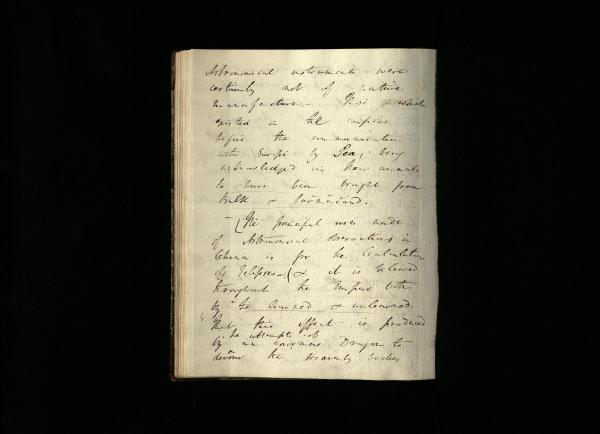 Astronomical instruments were
certainly not of native
manufacture - Those which
existed in the empire
before the communication
with Europe by Sea, being
acknowledged in
to have been brought from
Balk & Samarcand.
- (The principal uses made
of Astronomical Observations in
China is for the Calculation
of Eclipses - (& it is believed
throughout the Empire both
by the learned & unlearned
"that this effect is produced
the attempts of
by an enormous Dragon to
devour the heavenly bodies